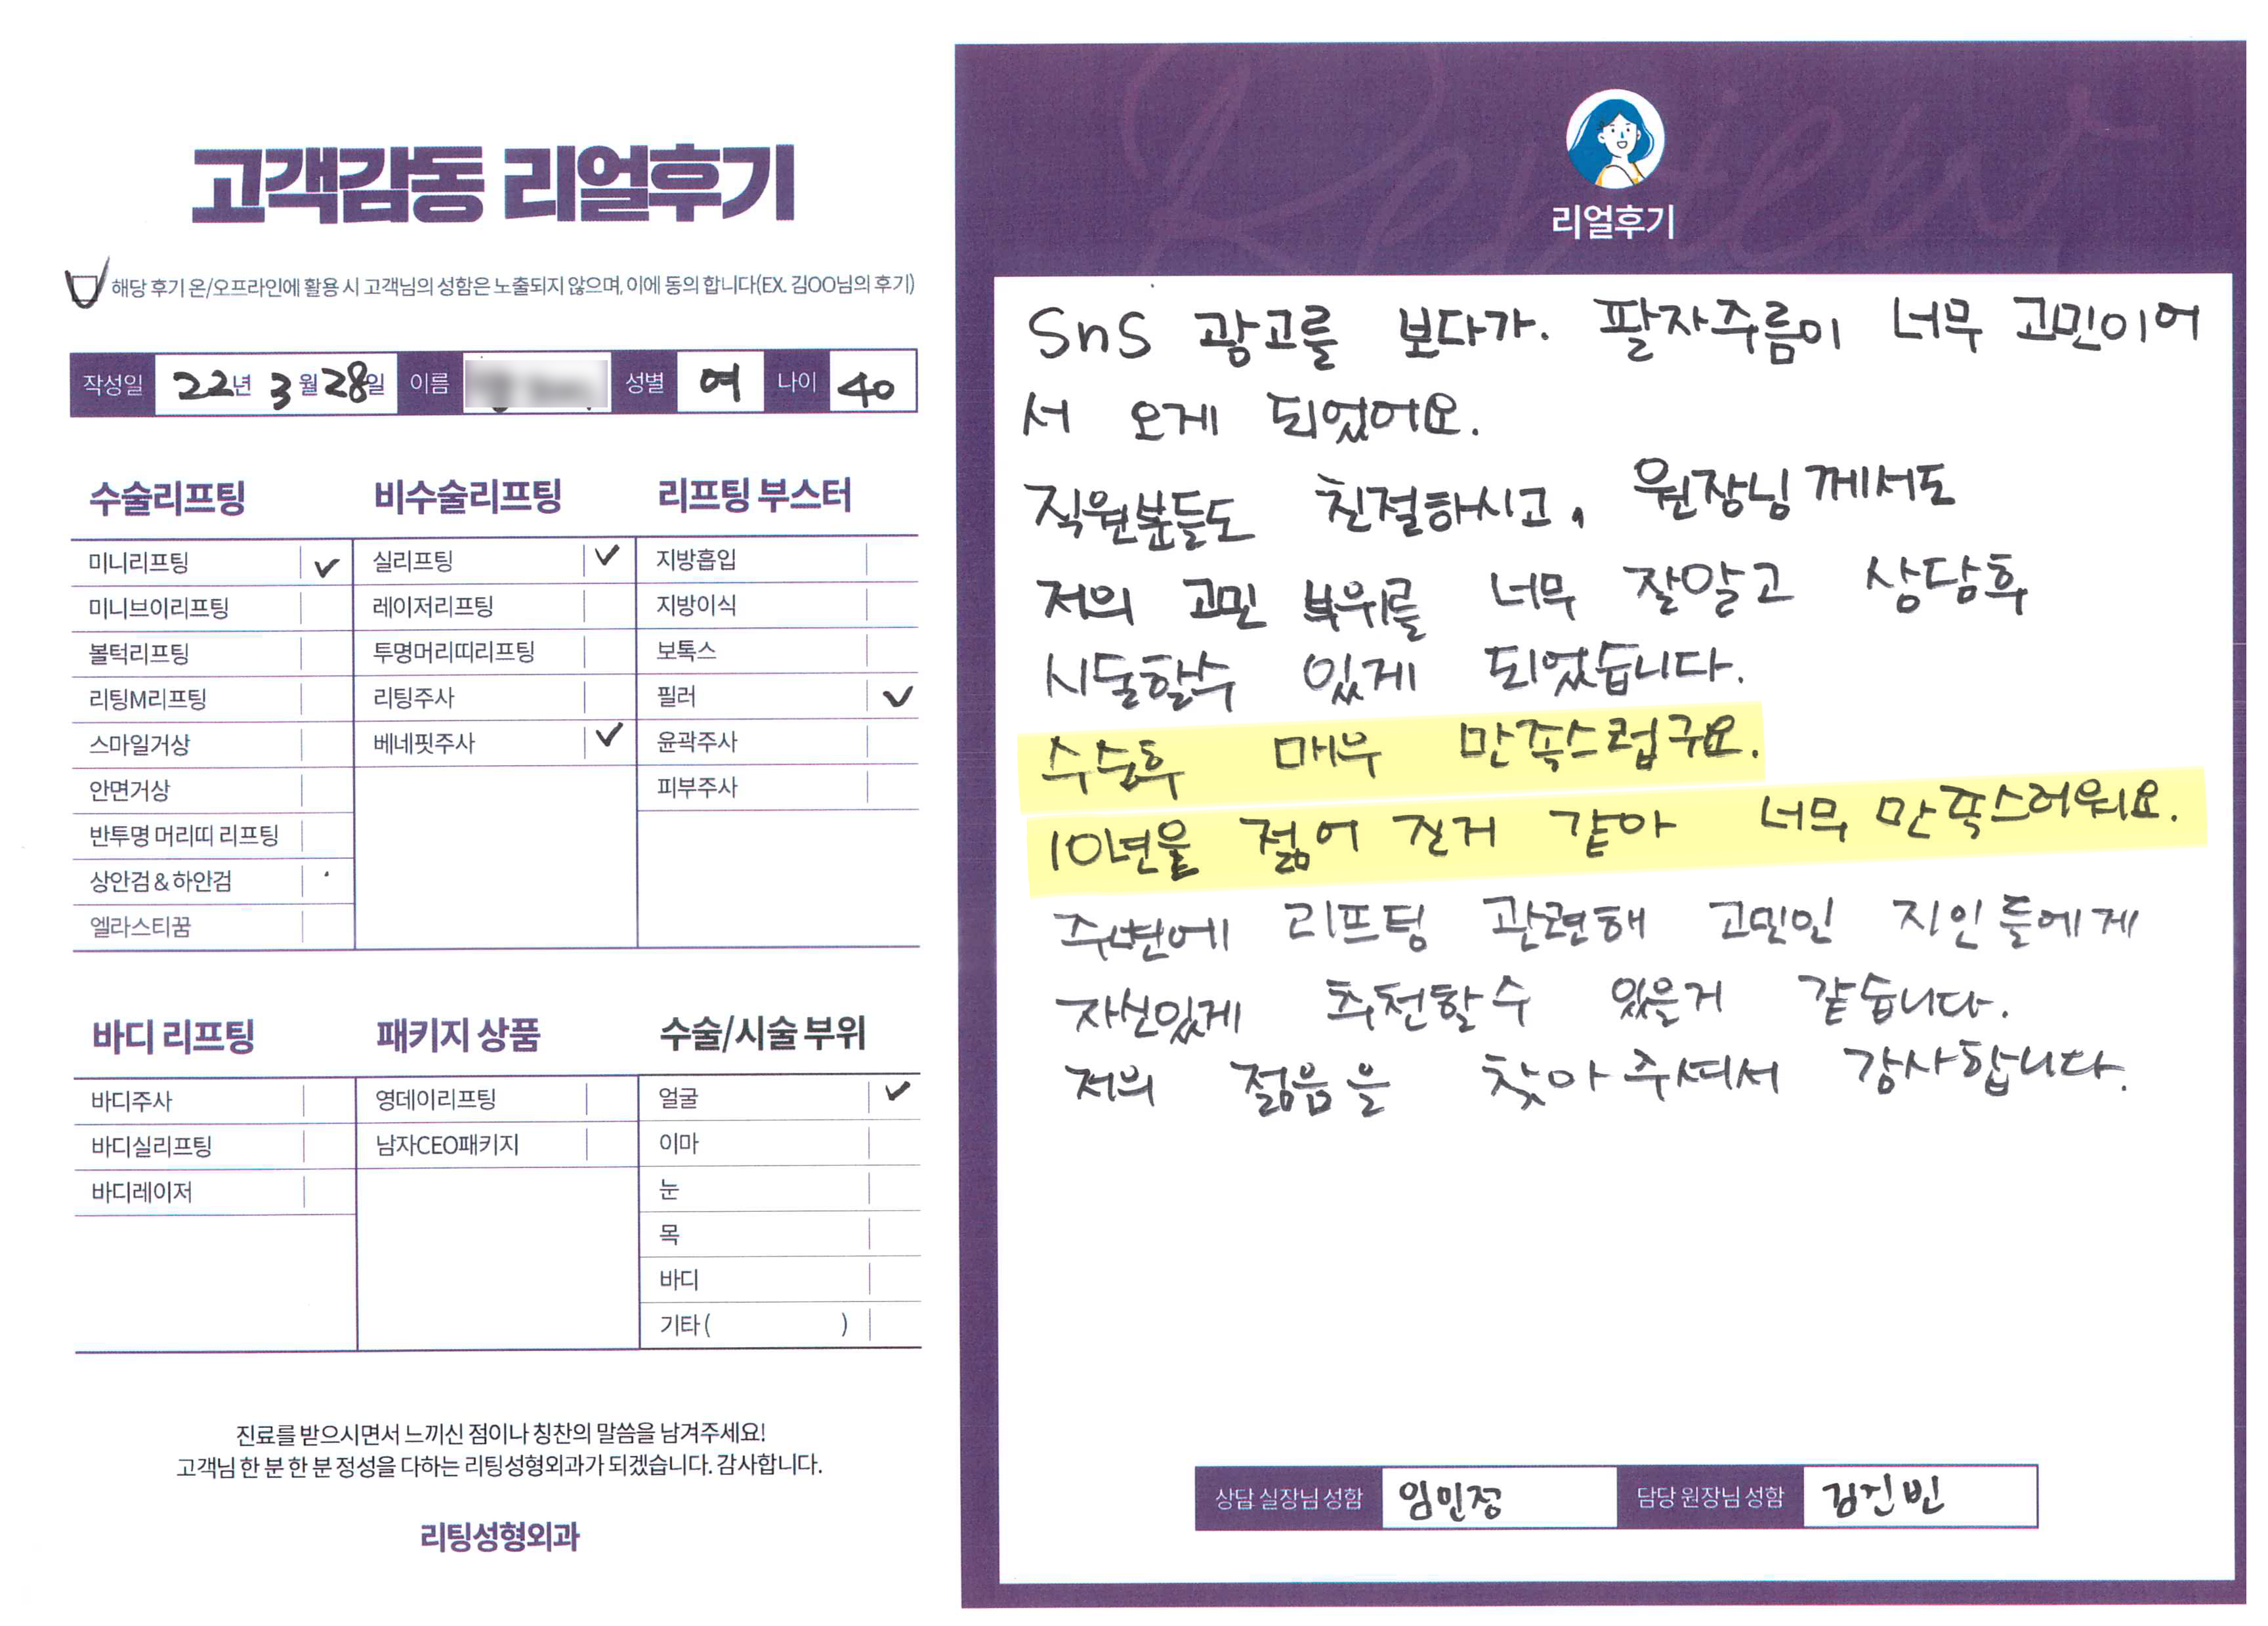 고객감동 리얼후기
해당 후기 온/오프라인에 활용 시 고객님의 성함은 노출되지 않으며, 이에 동의 합니다(EX. 김OO님의 후기)
작성일 22년 3월 28일 이름 성별 여 나이 40
수술리프팅
미니리프팅 ✓
미니브이리프팅
볼턱리프팅
리팅M리프팅
스마일거상
안면거상
반투명 머리띠 리프팅
상안검 & 하안검
엘라스티꿈
비수술리프팅
실리프팅 ✓
레이저리프팅
투명머리띠리프팅
리팅주사
베네핏주사 ✓
리프팅 부스터
지방흡입
지방이식
보톡스
필러 ✓
윤곽주사
피부주사
바디 리프팅
바디주사
바디실리프팅
바디레이저
패키지 상품
영데이리프팅
남자CEO패키지
수술/시술 부위
얼굴 ✓
이마
눈
목
바디
기타 ( )
진료를 받으시면서 느끼신 점이나 칭찬의 말씀을 남겨주세요!
고객님 한 분 한 분 정성을 다하는 리팅성형외과가 되겠습니다. 감사합니다.
리팅성형외과
Review
리얼후기
SnS 광고를 보다가. 팔자주름이 너무 고민이어
서 오게 되었어요.
직원분들도 친절하시고, 원장님께서도
저의 고민 부위를 너무 잘알고 상담후
시술할수 있게 되었습니다.
수술후 매우 만족스럽구요.
10년을 젊어 진거 같아 너무 만족스러워요.
주변에 리프팅 관련해 고민인 지인들에게
자신있게 추천할수 있을거 같습니다.
저의 젊음을 찾아주셔서 감사합니다.
상담 실장님 성함 임민정 담당 원장님 성함 김건빈